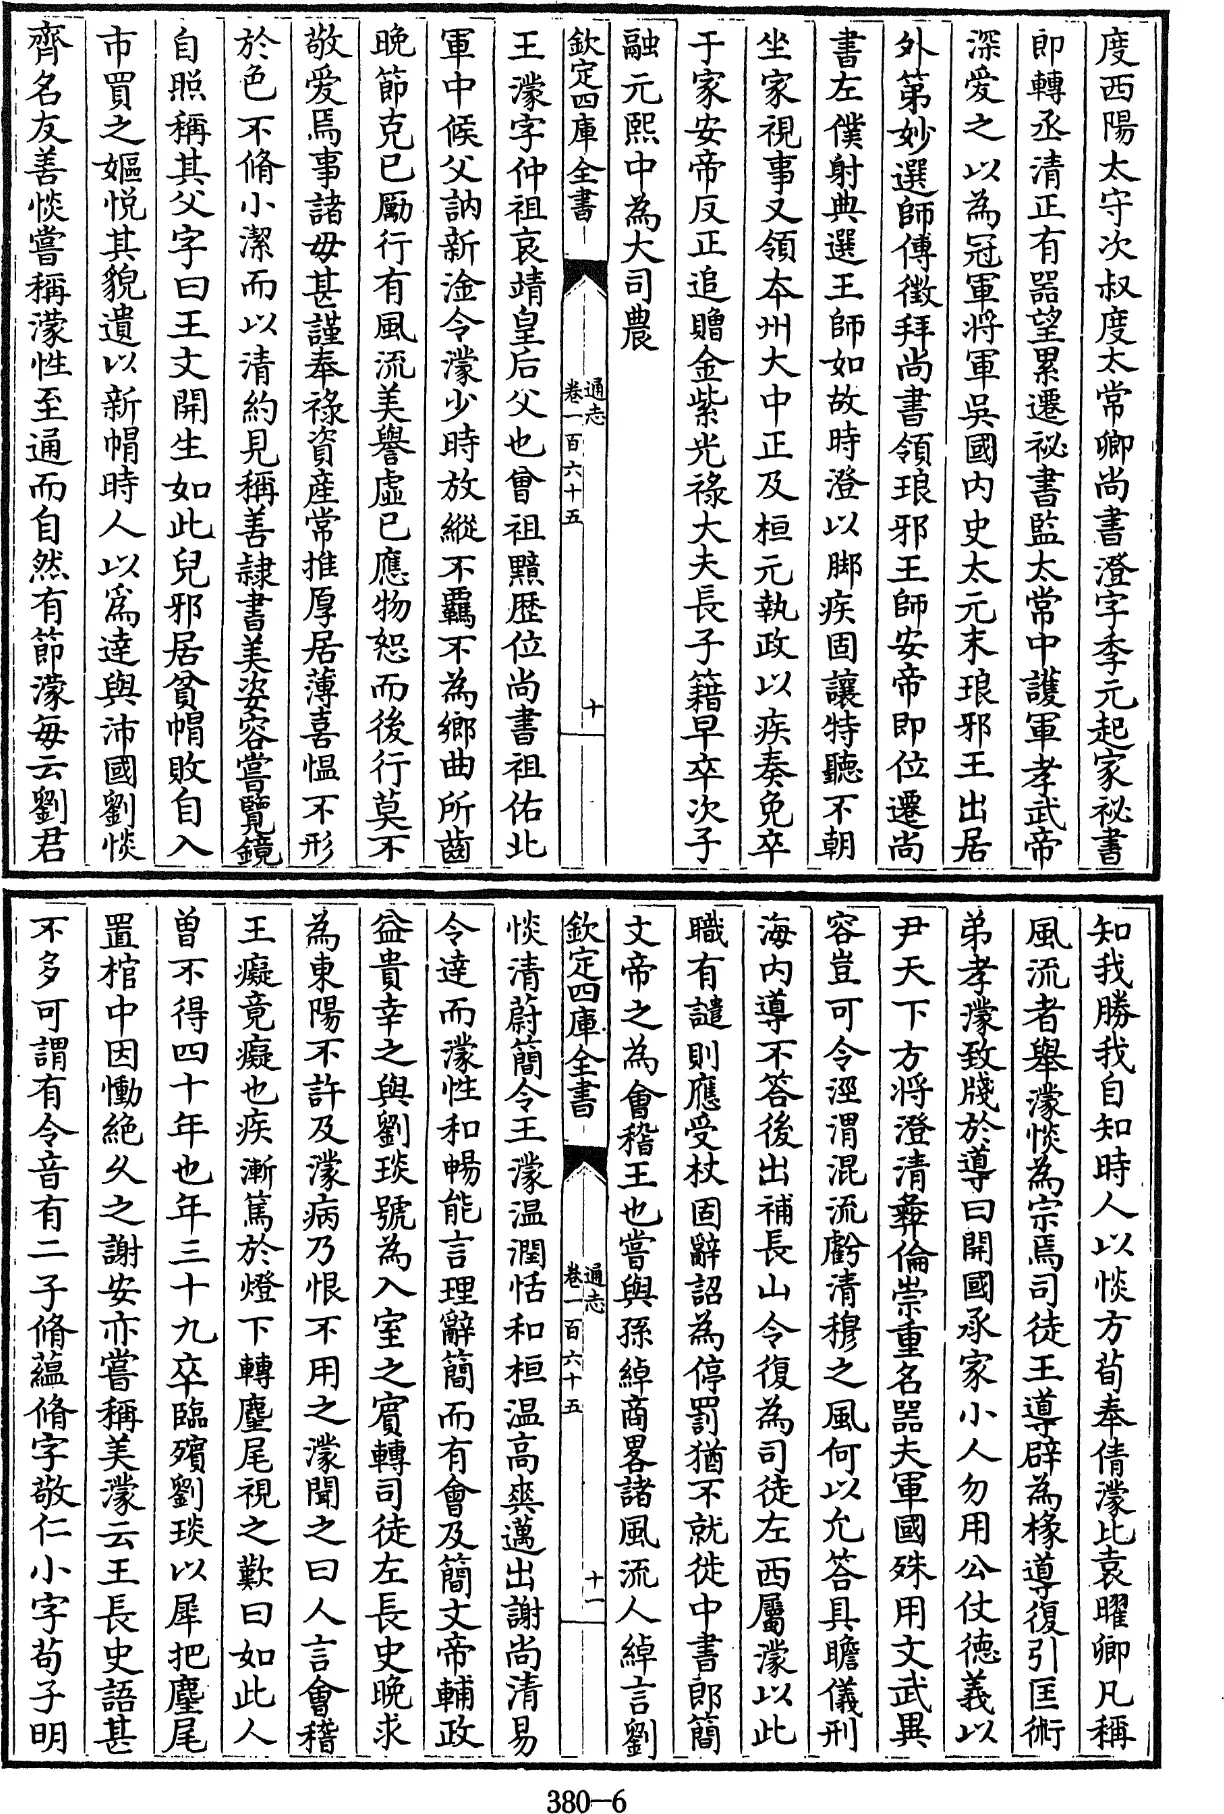 度西陽太守次叔度太常卿尚書澄字季元起家祕書
即轉丞清正有器望累遷祕書監太常中護軍孝武帝
深愛之以為冠軍將軍吳國内史太元末琅邪王出居
外第妙選師傅徵拜尚書領琅邪王師安帝即位遷尚
書左僕射典選王師如故時澄以脚疾固讓特聽不朝
坐家視事又領本州大中正及桓元執政以疾奏免卒
于家安帝反正追贈金紫光祿大夫長子籍早卒次子
融元熙中為大司農
欽定四庫全書
通志
卷一百六十五
十
王濛字仲祖哀靖皇后父也曾祖黯歴位尚書祖佑北
軍中候父訥新淦令濛少時放縱不羈不為鄉曲所齒
晚節克已厲行有風流美譽虛已應物恕而後行莫不
敬爱焉事諸毋甚謹奉祿資産常推厚居薄喜愠不形
於色不脩小潔而以清約見稱善隷書美姿容嘗覽鏡
自照稱其父字曰王文開生如此兒邪居貧帽敗自入
市買之嫗悦其貌遺以新帽時人以爲達與沛國劉惔
齊名友善惔嘗稱濛性至通而自然有節濛毎云劉君
知我勝我自知時人以惔方荀奉倩濛比袁曜卿凡稱
風流者舉濛惔為宗焉司徒王導辟為椽導復引匡術
弟孝濛致牋於導曰開國承家小人勿用公仗德義以
尹天下方將澄清彝倫崇重名器夫軍國殊用文武異
容豈可令涇渭混流虧清穆之風何以允答具瞻儀刑
海内導不答後出補長山令復為司徒左西屬濛以此
職有譴則應受杖固辭詔為停罰猶不就徙中書郎簡
文帝之為會稽王也嘗與孫綽商畧諸風流人綽言劉
欽定四庫全書
通志
卷一百六十五
十一
惔清蔚簡令王濛温潤恬和桓温高爽邁出謝尚清易
令達而濛性和暢能言理辭簡而有會及簡文帝輔政
益貴幸之與劉琰號為入室之賔轉司徒左長史晚求
為東陽不許及濛病乃恨不用之濛聞之曰人言會稽
王癡竟癡也疾漸篤於燈下轉麈尾視之歎曰如此人
曾不得四十年也年三十九卒臨殯劉琰以犀把麈尾
置棺中因慟絶久之謝安亦嘗稱美濛云王長史語甚
不多可謂有令音有二子脩蘊脩字敬仁小字苟子明
380-6